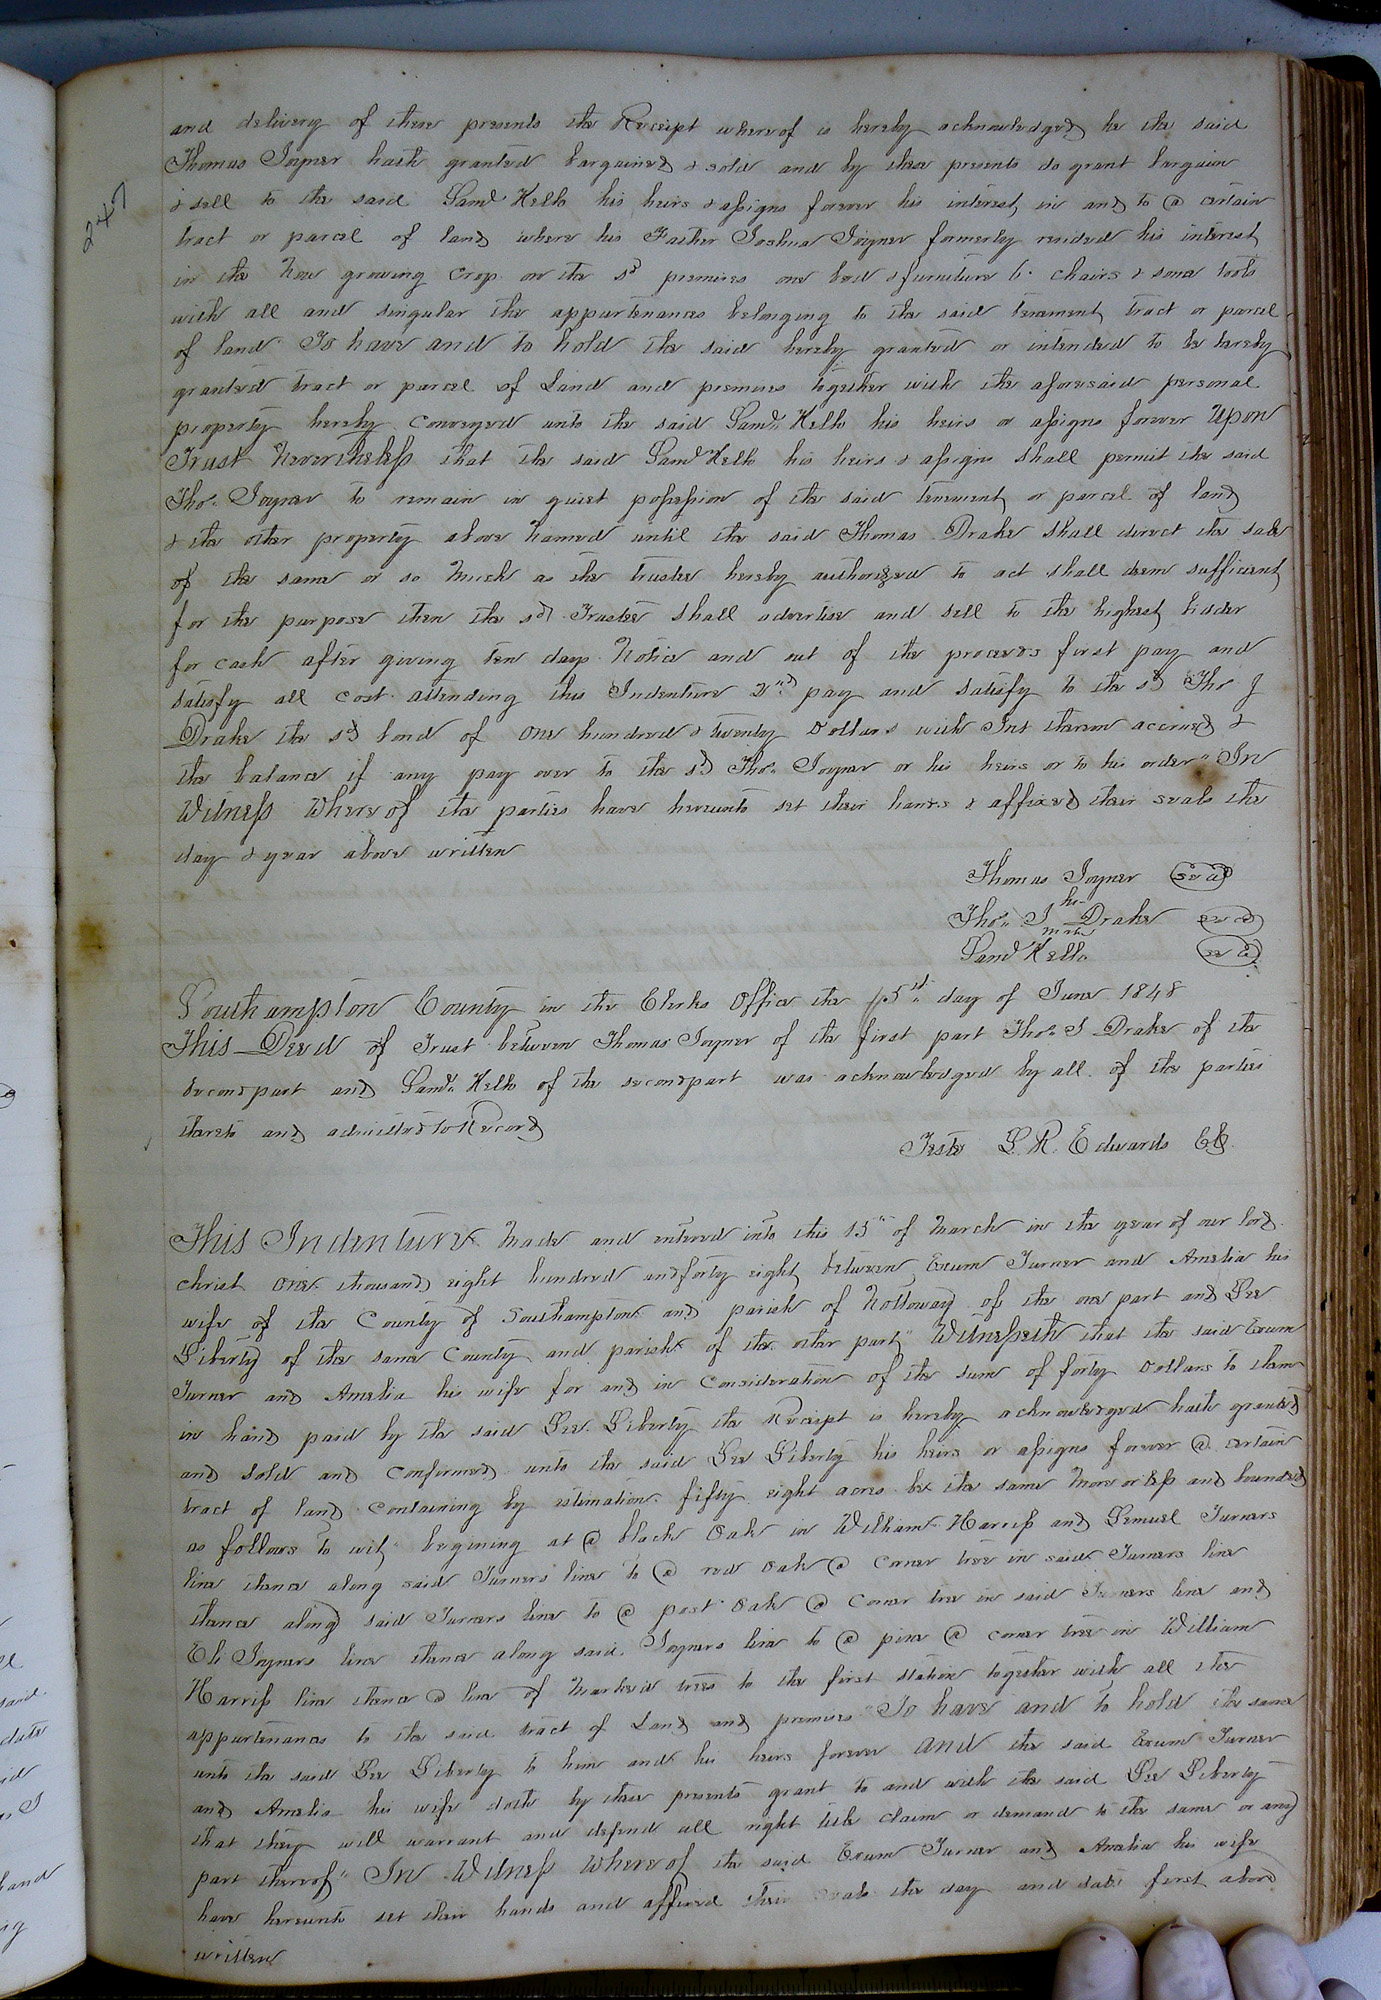 247
and delivery of these presents the Receipt whereof is hereby acknowledged he the said
Thomas Joyner hath granted bargained & sold and by these presents do grant bargain
& sell to the said Saml Kello his heirs & assigns forever his interest in and to @ certain
tract or parcel of land where his Father Joshua Joyner formerly resided his interest
in the now growing crop on the sd premises one bed & furniture 6 chairs & some tools
with all and singular the appurtenances belonging to the said tenement tract or parcel
of land To have and to hold the said hereby granted or intended to be hereby
granted tract or parcel of Land and premises together with the aforesaid personal
property hereby conveyed unto the said Saml Kello his heirs or assigns forever Upon
Trust Nevertheless that the said Saml Kello his heirs & assigns shall permit the said
Thos. Joyner to remain in quiet possession of the said tenement or parcel of land
& the other property above named until the said Thomas Drake shall direct the sale
of the same or so much as the trustee hereby authorized to act shall deem sufficient
for the purpose then the sd Trustee shall advertise and sell to the highest bidder
for cash after giving ten days Notice and out of the proceeds first pay and
satisfy all cost attending this Indenture 2nd pay and satisfy to the sd Thos J
Drake the sd bond of one hundred & twenty Dollars with Int thereon accrued &
the balance if any pay over to the sd Thos. Joyner or his heirs or to his order" In
Witness Whereof the parties have hereunto set their hands & affixed their seals the
day & year above written
Thomas Joyner seal
his
Thos. J Drake seal
mark
Saml Kello seal
Southampton County in the Clerks Office the 15th day of June 1848
This Deed of Trust between Thomas Joyner of the first part Thos. J Drake of the
second part and Saml. Kello of the second part was acknowledged by all of the parties
thereto and admitted to Record
Teste L. R. Edwards CC
This Indenture Made and entered into this 15th of March in the year of our lord
christ one thousand eight hundred and forty eight between Exum Turner and Amelia his
wife of the County of Southampton and parish of Nottoway of the one part and Lee
Liberty of the same County and parish of the other part" Witnesseth that the said Exum
Turner and Amelia his wife for and in consideration of the sum of forty Dollars to them
in hand paid by the said Lee Liberty the Receipt is hereby acknowledged hath granted
and sold and confirmed unto the said Lee Liberty his heirs or assigns forever @ certain
tract of land containing by estimation fifty eight acres be the same more or less and bounded
as follows to wit" begining at @ black Oak in William Harriss and Lemuel Turners
line thence along said Turners line to @ red Oak @ corner tree in said Turners line
thence along said Turners line to @ post Oak @ corner tree in said Turners line and
Eli Joyners line thence along said Joyners line to @ pine @ corner tree in William
Harriss line thence @ line of marked trees to the first station together with all the
appurtenances to the said tract of Land and premises "To have and to hold the same
unto the said Lee Liberty to him and his heirs forever and the said Exum Turner
and Amelia his wife doth by these presents grant to and with the said Lee Liberty
that they will warrant and defend all right title claim or demand to the same or any
part thereof" In Witness Whereof the said Exum Turner and Amelia his wife
have hereunto set their hands and affixed their seals the day and date first above
written